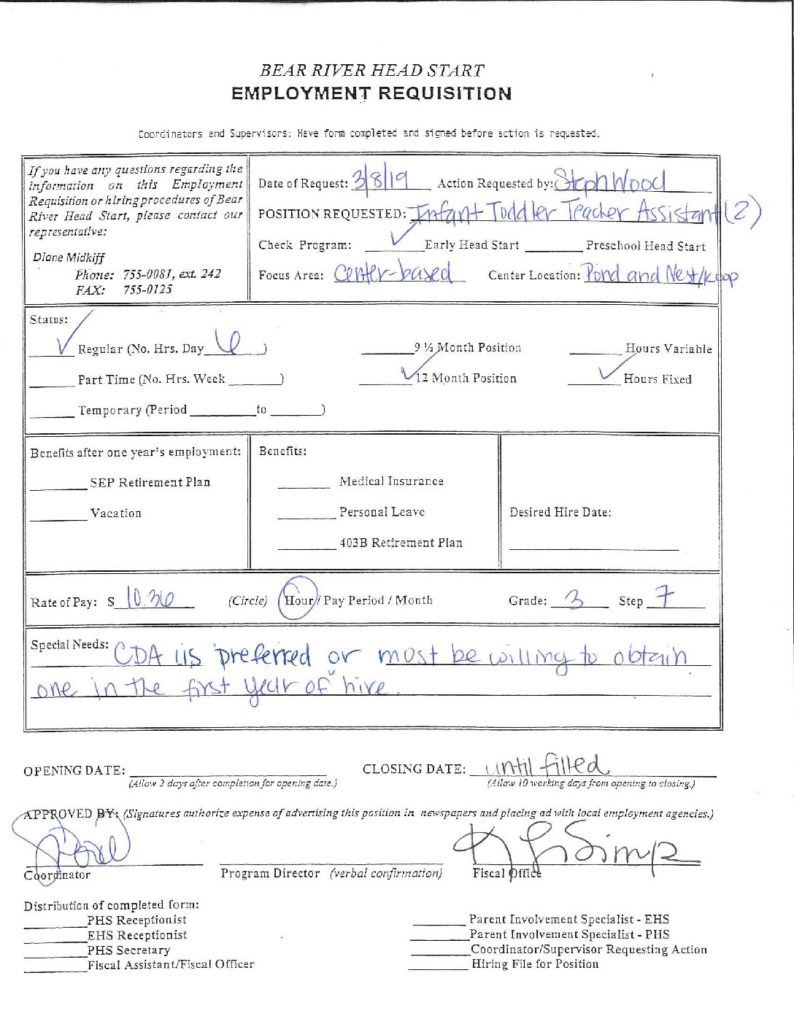 BEAR RIVER HEAD START
EMPLOYMENT REQUISITION
Coordinators and Supervisors: Have form completed and signed before action is requested.
If you have any questions regarding the information on this Employment Requisition or hiring procedures of Bear River Head Start, please contact our representative:
Diane Midkiff
Phone: 755-0081, ext. 242
FAX: 755-0125
Date of Request: 3/8/19 Action Requested by: Steph Wood
POSITION REQUESTED: Infant Toddler Teacher Assistant (2)
Check Program: ✓ Early Head Start ______ Preschool Head Start
Focus Area: Center-based Center Location: Pond and Nest/Koop
Status:
✓ Regular (No. Hrs. Day 6 ) ______ 9 ½ Month Position ______ Hours Variable
______ Part Time (No. Hrs. Week ______) ✓ 12 Month Position ✓ Hours Fixed
______ Temporary (Period ______ to ______)
Benefits after one year's employment:
______ SEP Retirement Plan
______ Vacation
Benefits:
______ Medical Insurance
______ Personal Leave
______ 403B Retirement Plan
Desired Hire Date:
Rate of Pay: $ 10.36 (Circle) Hour / Pay Period / Month Grade: 3 Step 7
Special Needs: CDA is preferred or most be willing to obtain
one in the first year of hire.
OPENING DATE: ______ CLOSING DATE: until filled
(Allow 2 days after completion for opening date.) (Allow 10 working days from opening to closing.)
APPROVED BY: (Signatures authorize expense of advertising this position in newspapers and placing ad with local employment agencies.)
Coordinator Program Director (verbal confirmation) Fiscal Office
Distribution of completed form:
______ PHS Receptionist
______ EHS Receptionist
______ PHS Secretary
______ Fiscal Assistant/Fiscal Officer
______ Parent Involvement Specialist - EHS
______ Parent Involvement Specialist - PHS
______ Coordinator/Supervisor Requesting Action
______ Hiring File for Position